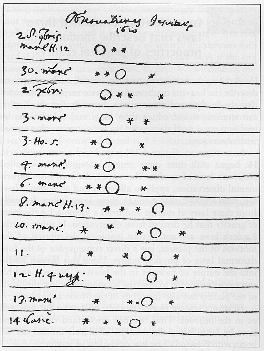 Observationes Jesuitarum
1610
2. S. 9bris.
mane H. 12 ○ * *
30. mane * * ○ *
2. xbris ○ * * *
3. mane ○ * *
3. Ho. 5. * ○ *
4. mane. * ○ * *
6. mane * * ○ *
8. mane H. 13. * * * ○
10. mane. * * * ○ *
11. * * ○ *
12. H. 4 vesp. * ○ *
13. mane * * * ○ *
14 * * * ○ *